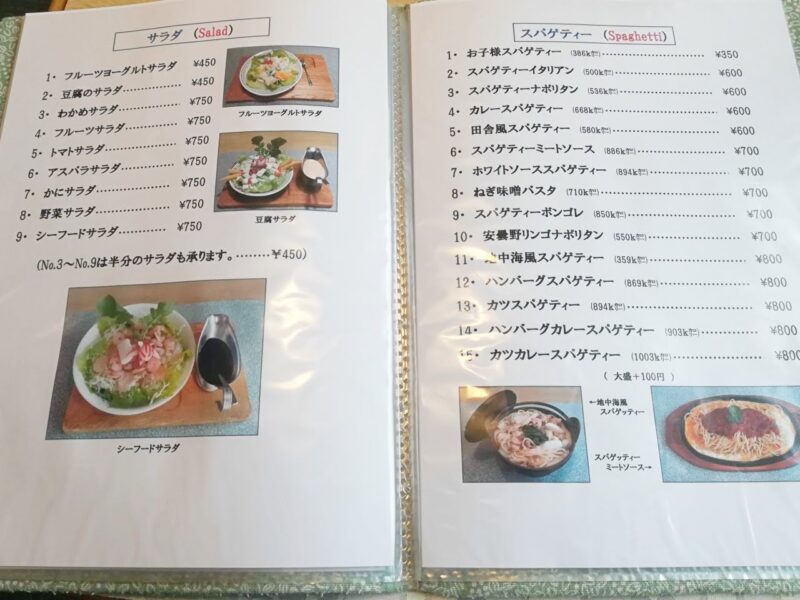 サラダ (Salad)
1・ フルーツヨーグルトサラダ ¥450
2・ 豆腐のサラダ…………… ¥450
3・ わかめサラダ…………… ¥750
4・ フルーツサラダ………… ¥750
5・ トマトサラダ…………… ¥750
6・ アスパラサラダ………… ¥750
7・ かにサラダ……………… ¥750
8・ 野菜サラダ……………… ¥750
9・ シーフードサラダ……… ¥750
(No.3～No.9は半分のサラダも承ります。………¥450)
フルーツヨーグルトサラダ
豆腐サラダ
シーフードサラダ
スパゲティー (Spaghetti)
1・ お子様スパゲティー (386kカロリー)………………… ¥350
2・ スパゲティーイタリアン (500kカロリー)………………… ¥600
3・ スパゲティーナポリタン (536kカロリー)………………… ¥600
4・ カレースパゲティー (668kカロリー)………………… ¥600
5・ 田舎風スパゲティー (580kカロリー)………………… ¥600
6・ スパゲティーミートソース (886kカロリー)………………… ¥700
7・ ホワイトソーススパゲティー (894kカロリー)………………… ¥700
8・ ねぎ味噌パスタ (710kカロリー)………………… ¥700
9・ スパゲティーボンゴレ (850kカロリー)………………… ¥700
10・ 安曇野リンゴナポリタン (550kカロリー)………………… ¥700
11・ 地中海風スパゲティー (359kカロリー)………………… ¥800
12・ ハンバーグスパゲティー (869kカロリー)………………… ¥800
13・ カツスパゲティー (894kカロリー)………………… ¥800
14・ ハンバーグカレースパゲティー (903kカロリー)………………… ¥800
15・ カツカレースパゲティー (1003kカロリー)………………… ¥800
( 大盛＋100円 )
←地中海風
スパゲッティー
スパゲッティー
ミートソース→